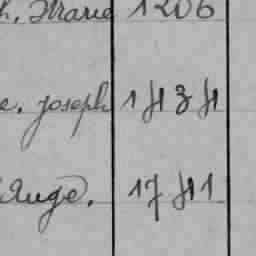 h, Marie 1206
e. Joseph 1434
Ange. 1741